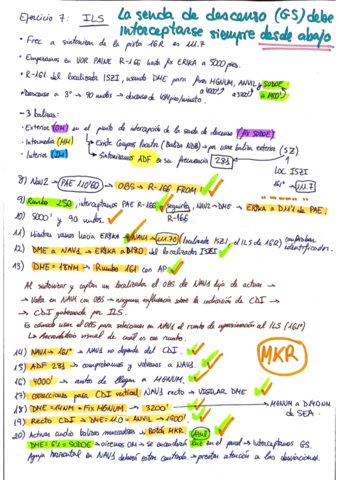 Ejercicio 7: ILS
La senda de descenso (GS) debe
interceptarse siempre desde abajo
• Frec a sintonizar de la pista 16R es 111.7
• Empezamos en VOR PAINE R-166 hasta fix ERIKA a 5000 pies.
• R-161 del localizador ISZI, usando DME para fixes MGNUM, ANVIL y SODOE
• Descenso a 3° → 90 nudos → descenso de pies/minuto.
- 3 balizas:
• Exterior (OM) en el punto de interceptación de la senda de descenso (fix SODOE)
• Intermedia (MM)
• Interior (IM)
Existe Compass locator (Baliza NDB) → para usar baliza exterior (SZ)
Sintonizamos ADF en su frecuencia 281
LOC ISZI
161° → 111.7
8) NAV2 → PAE 110'60 → OBS → R-166 FROM
9) Rumbo 250, interceptamos PAE R-166 seguirla, NAV2 → DME → ERIKA a D11'1 de PAE.
R-166
10) 5000' y 90 nudos.
11) Mientras vamos hacia ERIKA → NAV1 → 111.70 (localizador ISZI, el ILS de 16R) comprobar identificador.
12) DME a NAV1 → ERIKA a del localizador ISZI
13) DME = 18NM → Rumbo 161 con AP
Al sintonizar y captar un localizador el OBS de NAV1 deja de actuar →
→ Valor en NAV1 con OBS → ninguna influencia sobre la indicación de CDI →
→ CDI gobernado por ILS.
Es cómodo usar el OBS para seleccionar en NAV1 el rumbo de aproximación al ILS (161°)
↳ Recordatorio visual de cuál es ese rumbo.
14) NAV1 → 161° → NAV1 no depende del CDI.
15) ADF 281 → comprobamos y volvemos a NAV1.
MKR
16) 4000' → antes de llegar a MGNUM.
17) correcciones para CDI vertical NAV1 recto → VIGILAR DME
18) DME = → Fix MGNUM → 3200'
MGNUM a
de SEA.
19) Recto CDI → DME = → ANVIL → 1900'
20) Activar audio balizas marcadoras → Botón MKR
DME = 6'1 = SODOE → oiremos OM → se encenderá luz en el panel → Interceptamos GS.
Aguja horizontal en NAV1 deberá estar centrada → prestar atención a las desviaciones.